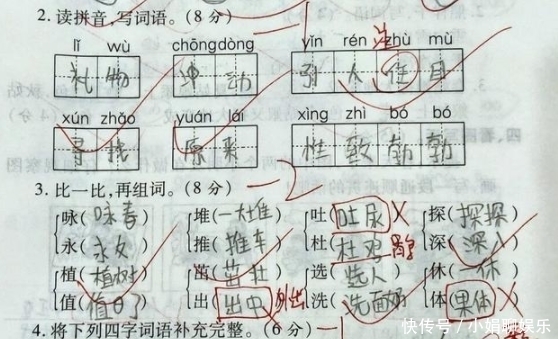 2.读拼音,写词语。(8分)
lǐ wù chōngdòng yǐn rén zhù mù
礼物 冲动 引人住目 注
xún zhǎo yuán lái xìng zhì bó bó
寻找 原来 性致勃勃
-2
3.比一比,再组词。(8分)
咏(咏春) 堆(一大堆) 吐(吐尿) 探(探探)
永(永女) 推(推车) 杜(杜鸡) 深(深八)
植(植树) 茁(茁壮) 选(选人) 休(一休)
值(值日) 出(出中) 外出 洗(洗面奶) 体(果体)
4.将下列四字词语补充完整。(6分) -1
快传号/小娟聊娱乐